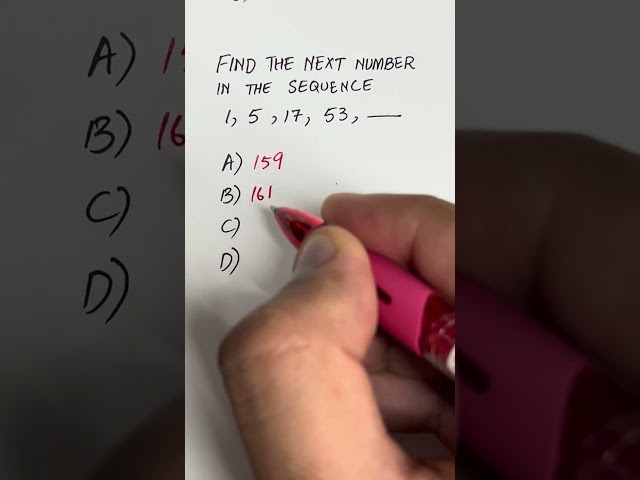 FIND THE NEXT NUMBER
IN THE SEQUENCE
1, 5, 17, 53, ___
A) 159
B) 161
C)
D)